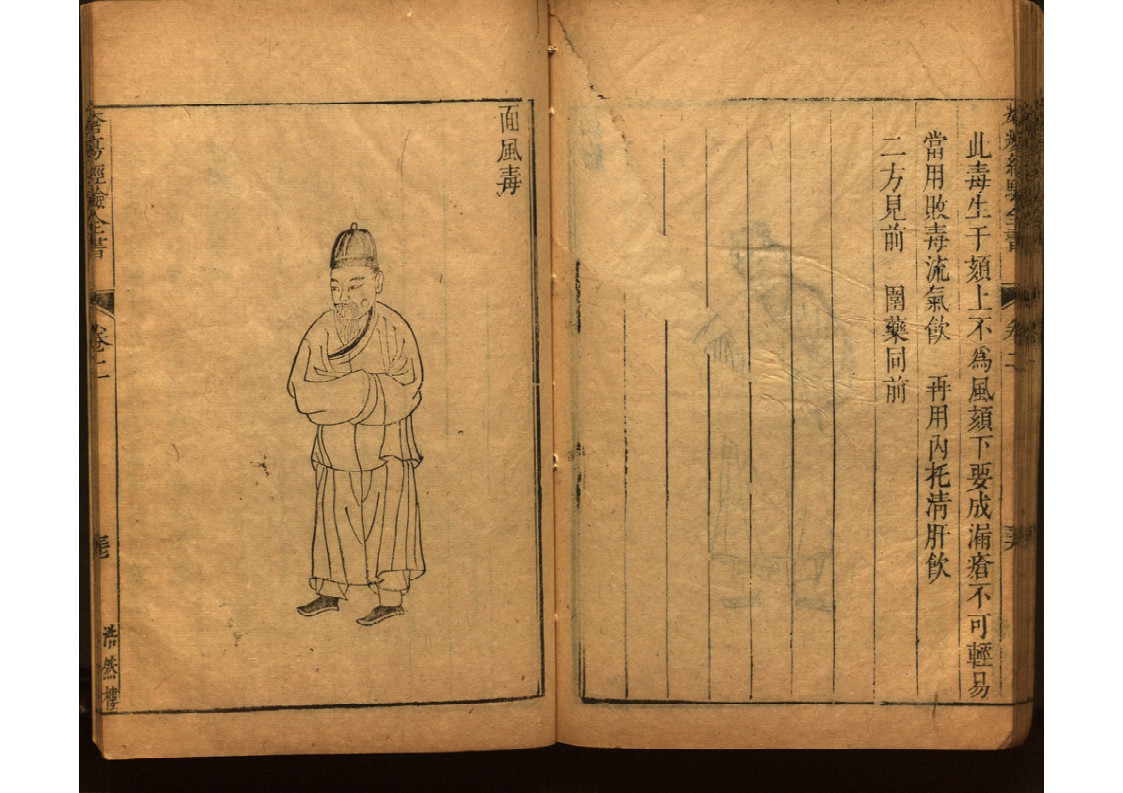 瘡瘍經驗全書
卷二
此毒生于頦上不為風頦下要成漏瘡不可輕易
當用敗毒流氣飲 再用內托清肝飲
二方見前 圍藥同前
面風毒
瘡瘍經驗全書
卷二
浩然樓